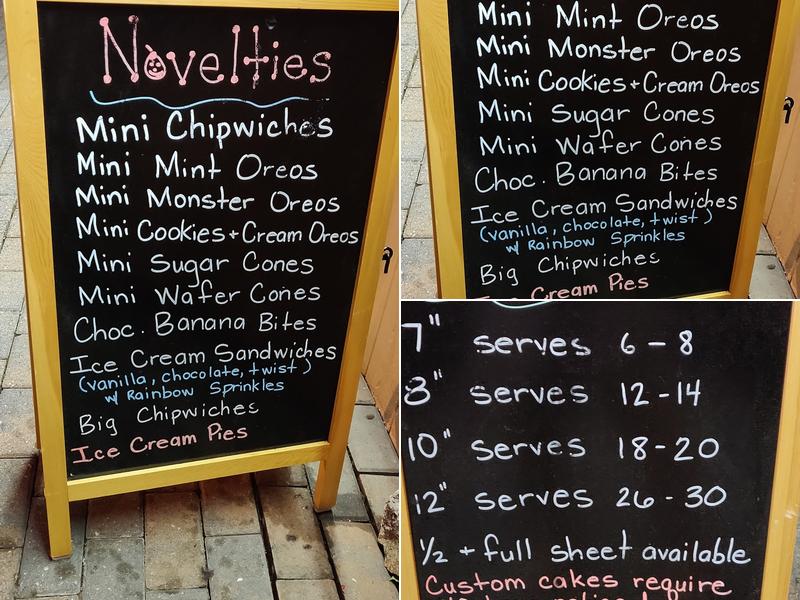 Novelties
Mini Chipwiches
Mini Mint Oreos
Mini Monster Oreos
Mini Cookies + Cream Oreos
Mini Sugar Cones
Mini Wafer Cones
Choc. Banana Bites
Ice Cream Sandwiches
(vanilla, chocolate, twist)
w/ Rainbow Sprinkles
Big Chipwiches
Ice Cream Pies
Mini Mint Oreos
Mini Monster Oreos
Mini Cookies + Cream Oreos
Mini Sugar Cones
Mini Wafer Cones
Choc. Banana Bites
Ice Cream Sandwiches
(vanilla, chocolate, twist)
w/ Rainbow Sprinkles
Big Chipwiches
Ice Cream Pies
7" serves 6 - 8
8" serves 12 - 14
10" serves 18 - 20
12" serves 26 - 30
1/2 + full sheet available
Custom cakes require